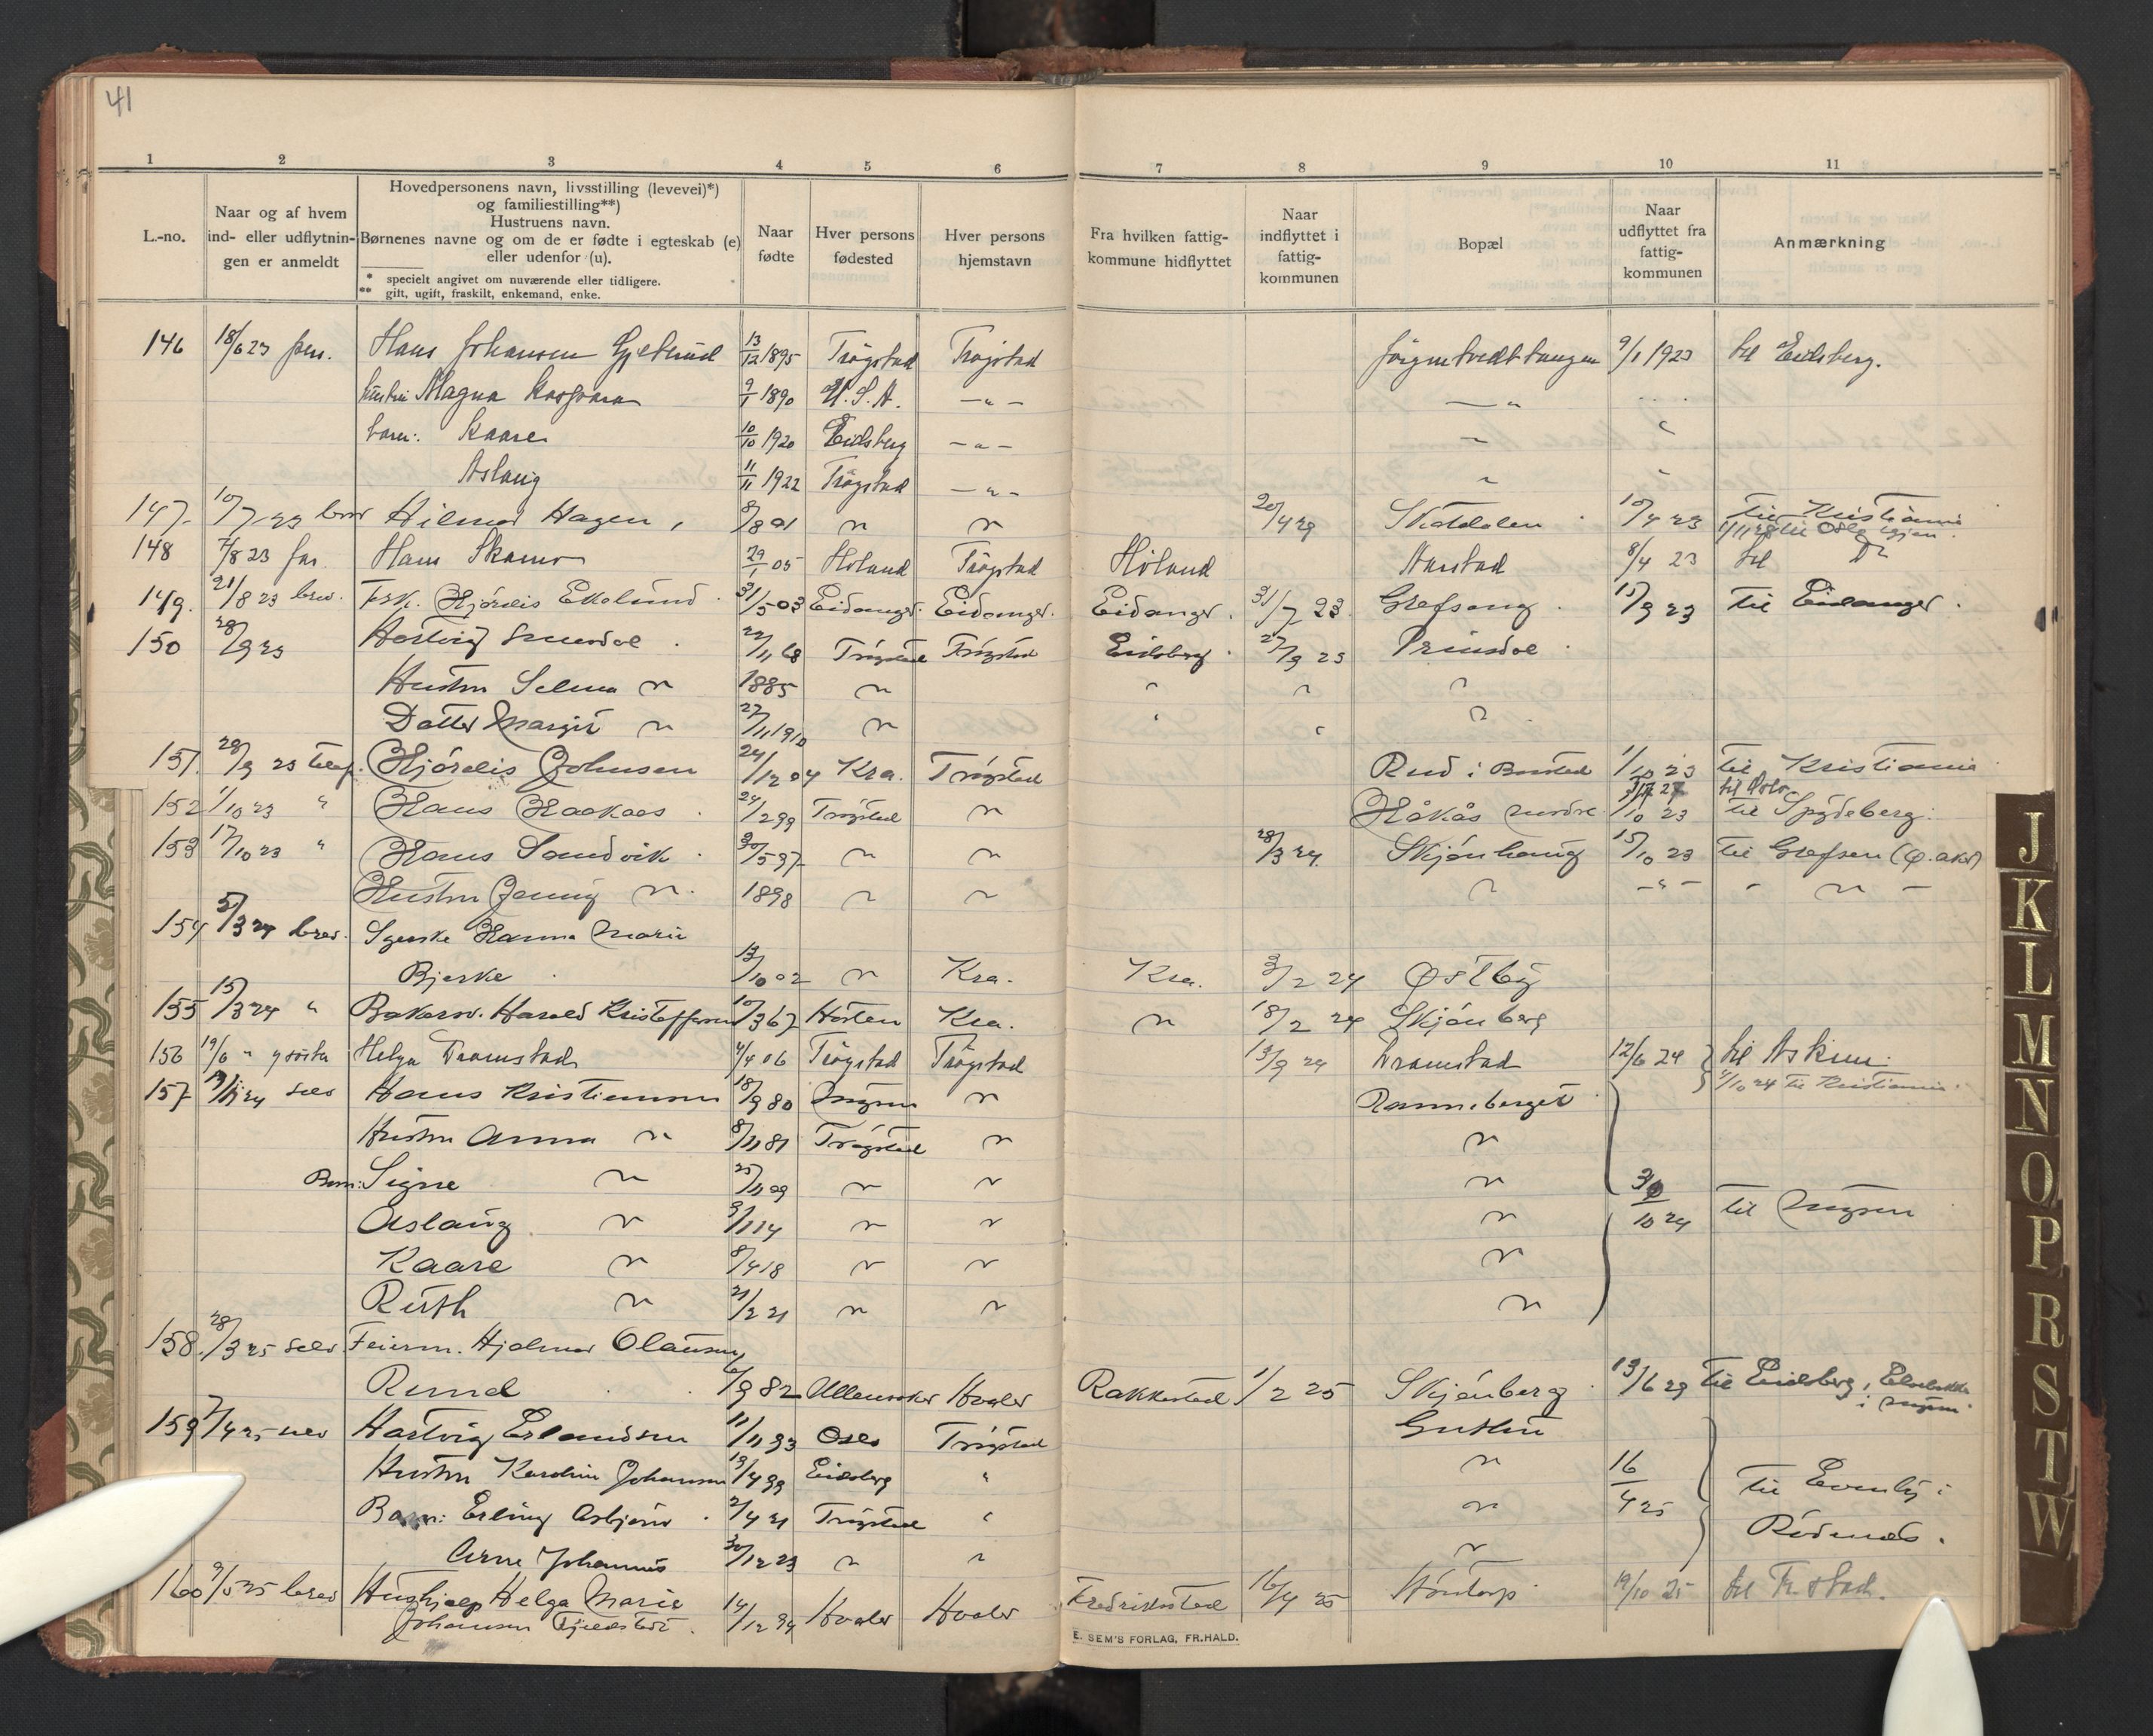 41
1 2 3 4 5 6 7 8 9 10 11
L.-no.
Naar og af hvem
ind- eller udflytnin-
gen er anmeldt
Hovedpersonens navn, livsstilling (levevei)*)
og familiestilling**)
Hustruens navn.
Børnenes navne og om de er fødte i egteskab (e)
eller udenfor (u).
* specielt angivet om nuværende eller tidligere.
** gift, ugift, fraskilt, enkemand, enke.
Naar
fødte
Hver persons
fødested
Hver persons
hjemstavn
Fra hvilken fattig-
kommune hidflyttet
Naar
indflyttet i
fattig-
kommunen
Bopæl
Naar
udflyttet fra
fattig-
kommunen
Anmærkning
146 18/6 23 Hans Johansen 13/12 1895 Trögstad Trögstad 9/1 1923 til Eidsberg.
hustru Magna 9/1 1890 U.S.A. —"— — "
barn: Kaare 10/10 1920 Eidsberg —"— "
Aslaug 11/11 1922 Trögstad —"— "
147 10/7 23 brev Hilmar Hagen, 8/8 01 " " 20/4 29 10/4 23 til Kristiania
til Oslo igjen.
148 7/8 23 Hans 29/1 05 Höland Trögstad Höland 8/4 23 til "
149. 21/8 23 brev. Frk. Hjördis Ekelund 31/5 03 Eidanger. Eidanger. Eidanger. 31/7 23. 15/9 23 til Eidanger.
150 28/9 23 Hartvig 22/11 68 Trögstad Trögstad Eidsberg. 27/9 23
Hustru Selma " 1885 " " " "
Datter Margit " 27/11 1910 " " " "
151. 28/9 23 telef. Hjördis Johnsen 24/12 04 Kra. Trögstad Rud i Båstad 1/10 23 til Kristiania
til Oslo
152 1/10 23 " Hans Haakaas 24/2 99 Trögstad " Håkås nordre 1/10 23 til Spydeberg.
153 17/10 23 " Hans Sandvik 30/5 97 " " 28/3 24. Skjönhaug 15/10 23 til Grefsen (Ø. aker)
Hustru Jenny " 1898 " " " —"— - " -
154 5/3 24 brev. Hanna Marie
Bjerke 13/10 02 " Kra. Kra. 3/2 24 Østby
155 15/3 24 " Bakersv. Harald Kristoffersen 10/3 67 Horten Kra. " 18/2 24 Skjönberg
156 19/6 " Helga Dramstad 4/4 06 Trögstad Trögstad 13/9 24 Dramstad 12/6 24 til Askim.
4/10 24 til Kristiania.
157 selv Hans Kristiansen 18/9 80 Mysen " Ramneberget
Hustru Anna " 8/11 81 Trögstad " "
Barn: Signe " 25/11 09 " " "
Aslaug " 9/1 14 " " " 10 24 til Mysen
Kaare " 8/4 18 " " "
Ruth " 21/2 21 " " "
158. 28/3 25 selv Feierm. Hjalmar Olausen
Rund 6/9 82 Ullensaker Hvaler Rakkestad 1/2 25 Skjönberg 13/6 29 til Eidsberg,
i Mysen.
159 7/4 25 selv Hartvig Erlandsen 11/11 93 Oslo Trögstad
Hustru Karoline Johansen 13/4 99 Eidsberg " " 16
4 25 til
Barn: Erling Asbjørn 2/4 21 Trögstad " " Rödenes.
Arne Johannes 30/12 23 " " "
160 9/5 25 brev Hushjælp Helga Marie 14/12 94 Hvaler Hvaler Fredrikstad 16/4 25 19/10 25 til Fr.stad.
Johansen
E. SEM'S FORLAG, FR.HALD.
J
K
L
M
N
O
P
R
S
T
W